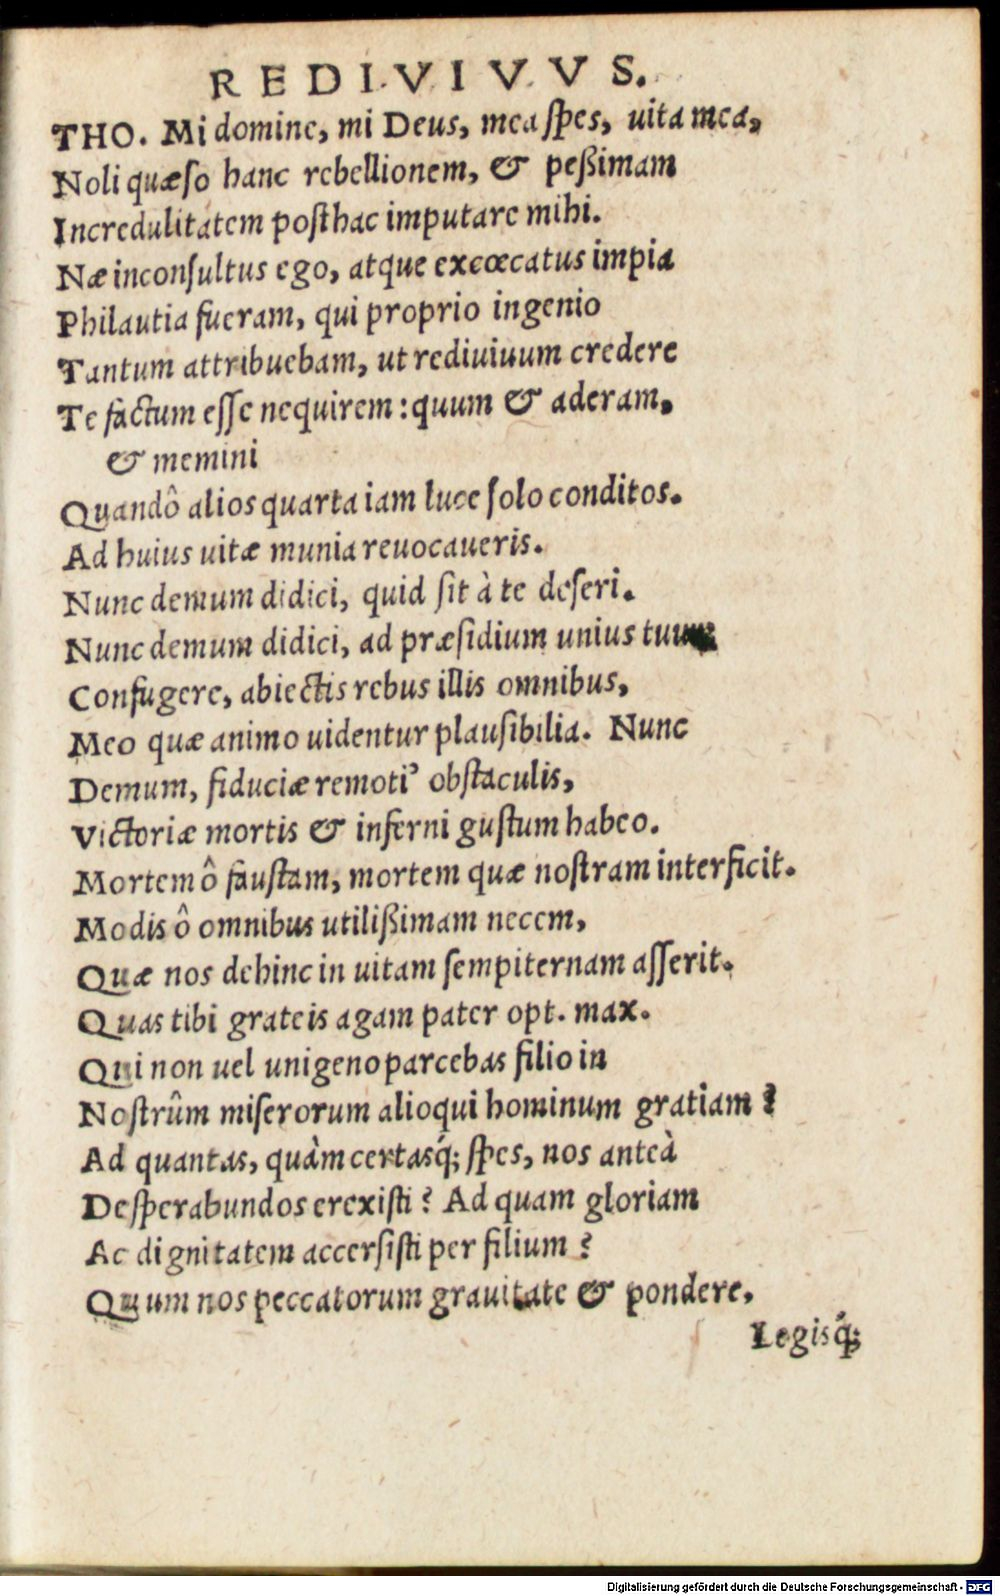 REDIVIVVS.
THO. Mi domine, mi Deus, mea ſpes, uita mea,
Noli quæſo hanc rebellionem, & peßimam
Incredulitatem poſthac imputare mihi.
Næ inconſultus ego, atque excœcatus impia
Philautia fueram, qui proprio ingenio
Tantum attribuebam, ut rediuiuum credere
Te factum eſſe nequirem: quum & aderam,
& memini
Quandô alios quarta iam luce ſolo conditos.
Ad huius uitæ munia reuocaueris.
Nunc demum didici, quid ſit à te deſeri.
Nunc demum didici, ad præſidium unius tuum
Confugere, abiectis rebus illis omnibus,
Meo quæ animo uidentur plauſibilia. Nunc
Demum, fiduciæ remotiꝰ obſtaculis,
Victoriæ mortis & inferni guſtum habeo.
Mortem ô fauſtam, mortem quæ noſtram interficit.
Modis ô omnibus utilißimam necem,
Quæ nos dehinc in uitam ſempiternam aſſerit.
Quas tibi grateis agam pater opt. max.
Qui non uel unigeno parcebas filio in
Noſtrûm miſerorum alioqui hominum gratiam?
Ad quantas, quàm certasq́; ſpes, nos anteà
Deſperabundos erexiſti? Ad quam gloriam
Ac dignitatem accerſiſti per filium?
Quum nos peccatorum grauitate & pondere,
Legisq́;
Digitalisierung gefördert durch die Deutsche Forschungsgemeinschaft - DFG